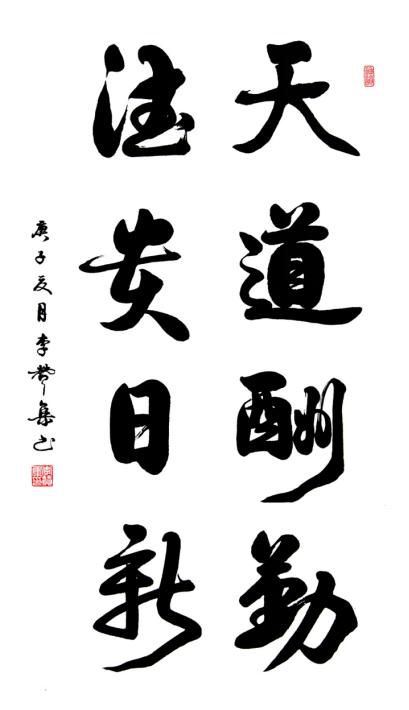 天道酬勤
德贵日新
庚子夏月李集书